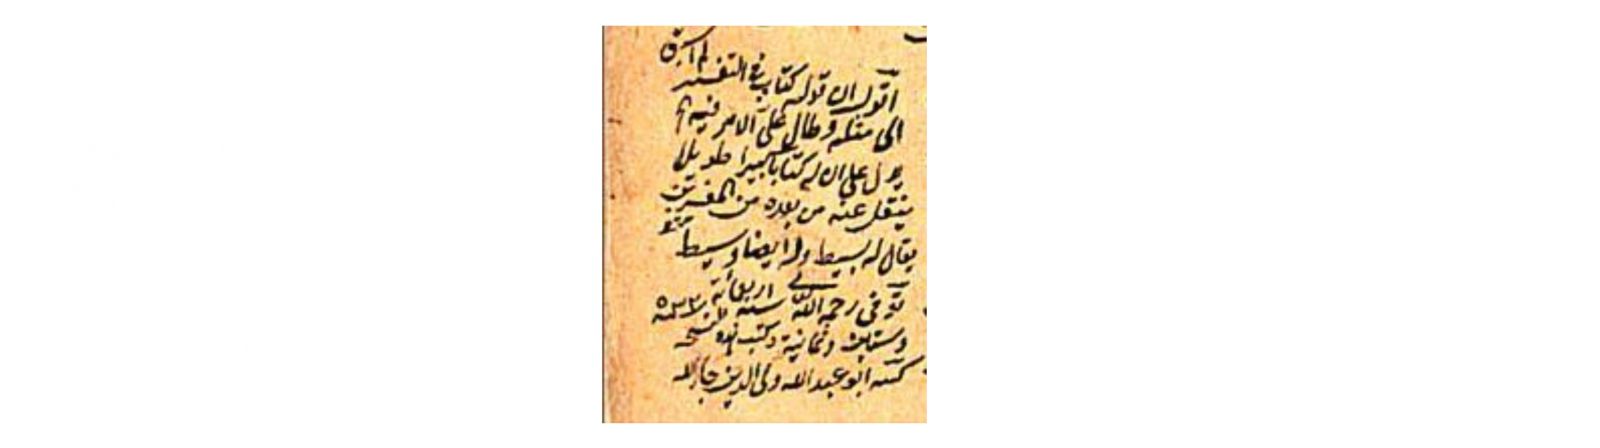 أقول ان قوله كتاب في التفسير لم اسبق
الى مثله وطال علىّ الامر فيه
يدل على ان له كتابا كبيرا طويلا
ينقل عنه من بعده من المفسرين
يقال له بسيط وله ايضا وسيط
توفى رحمه الله سنة اربعمائة
وستين وثمانية وكتب هذه النسخة سنة ٥٣٧
كتبه ابو عبد الله ولى الدين جار الله